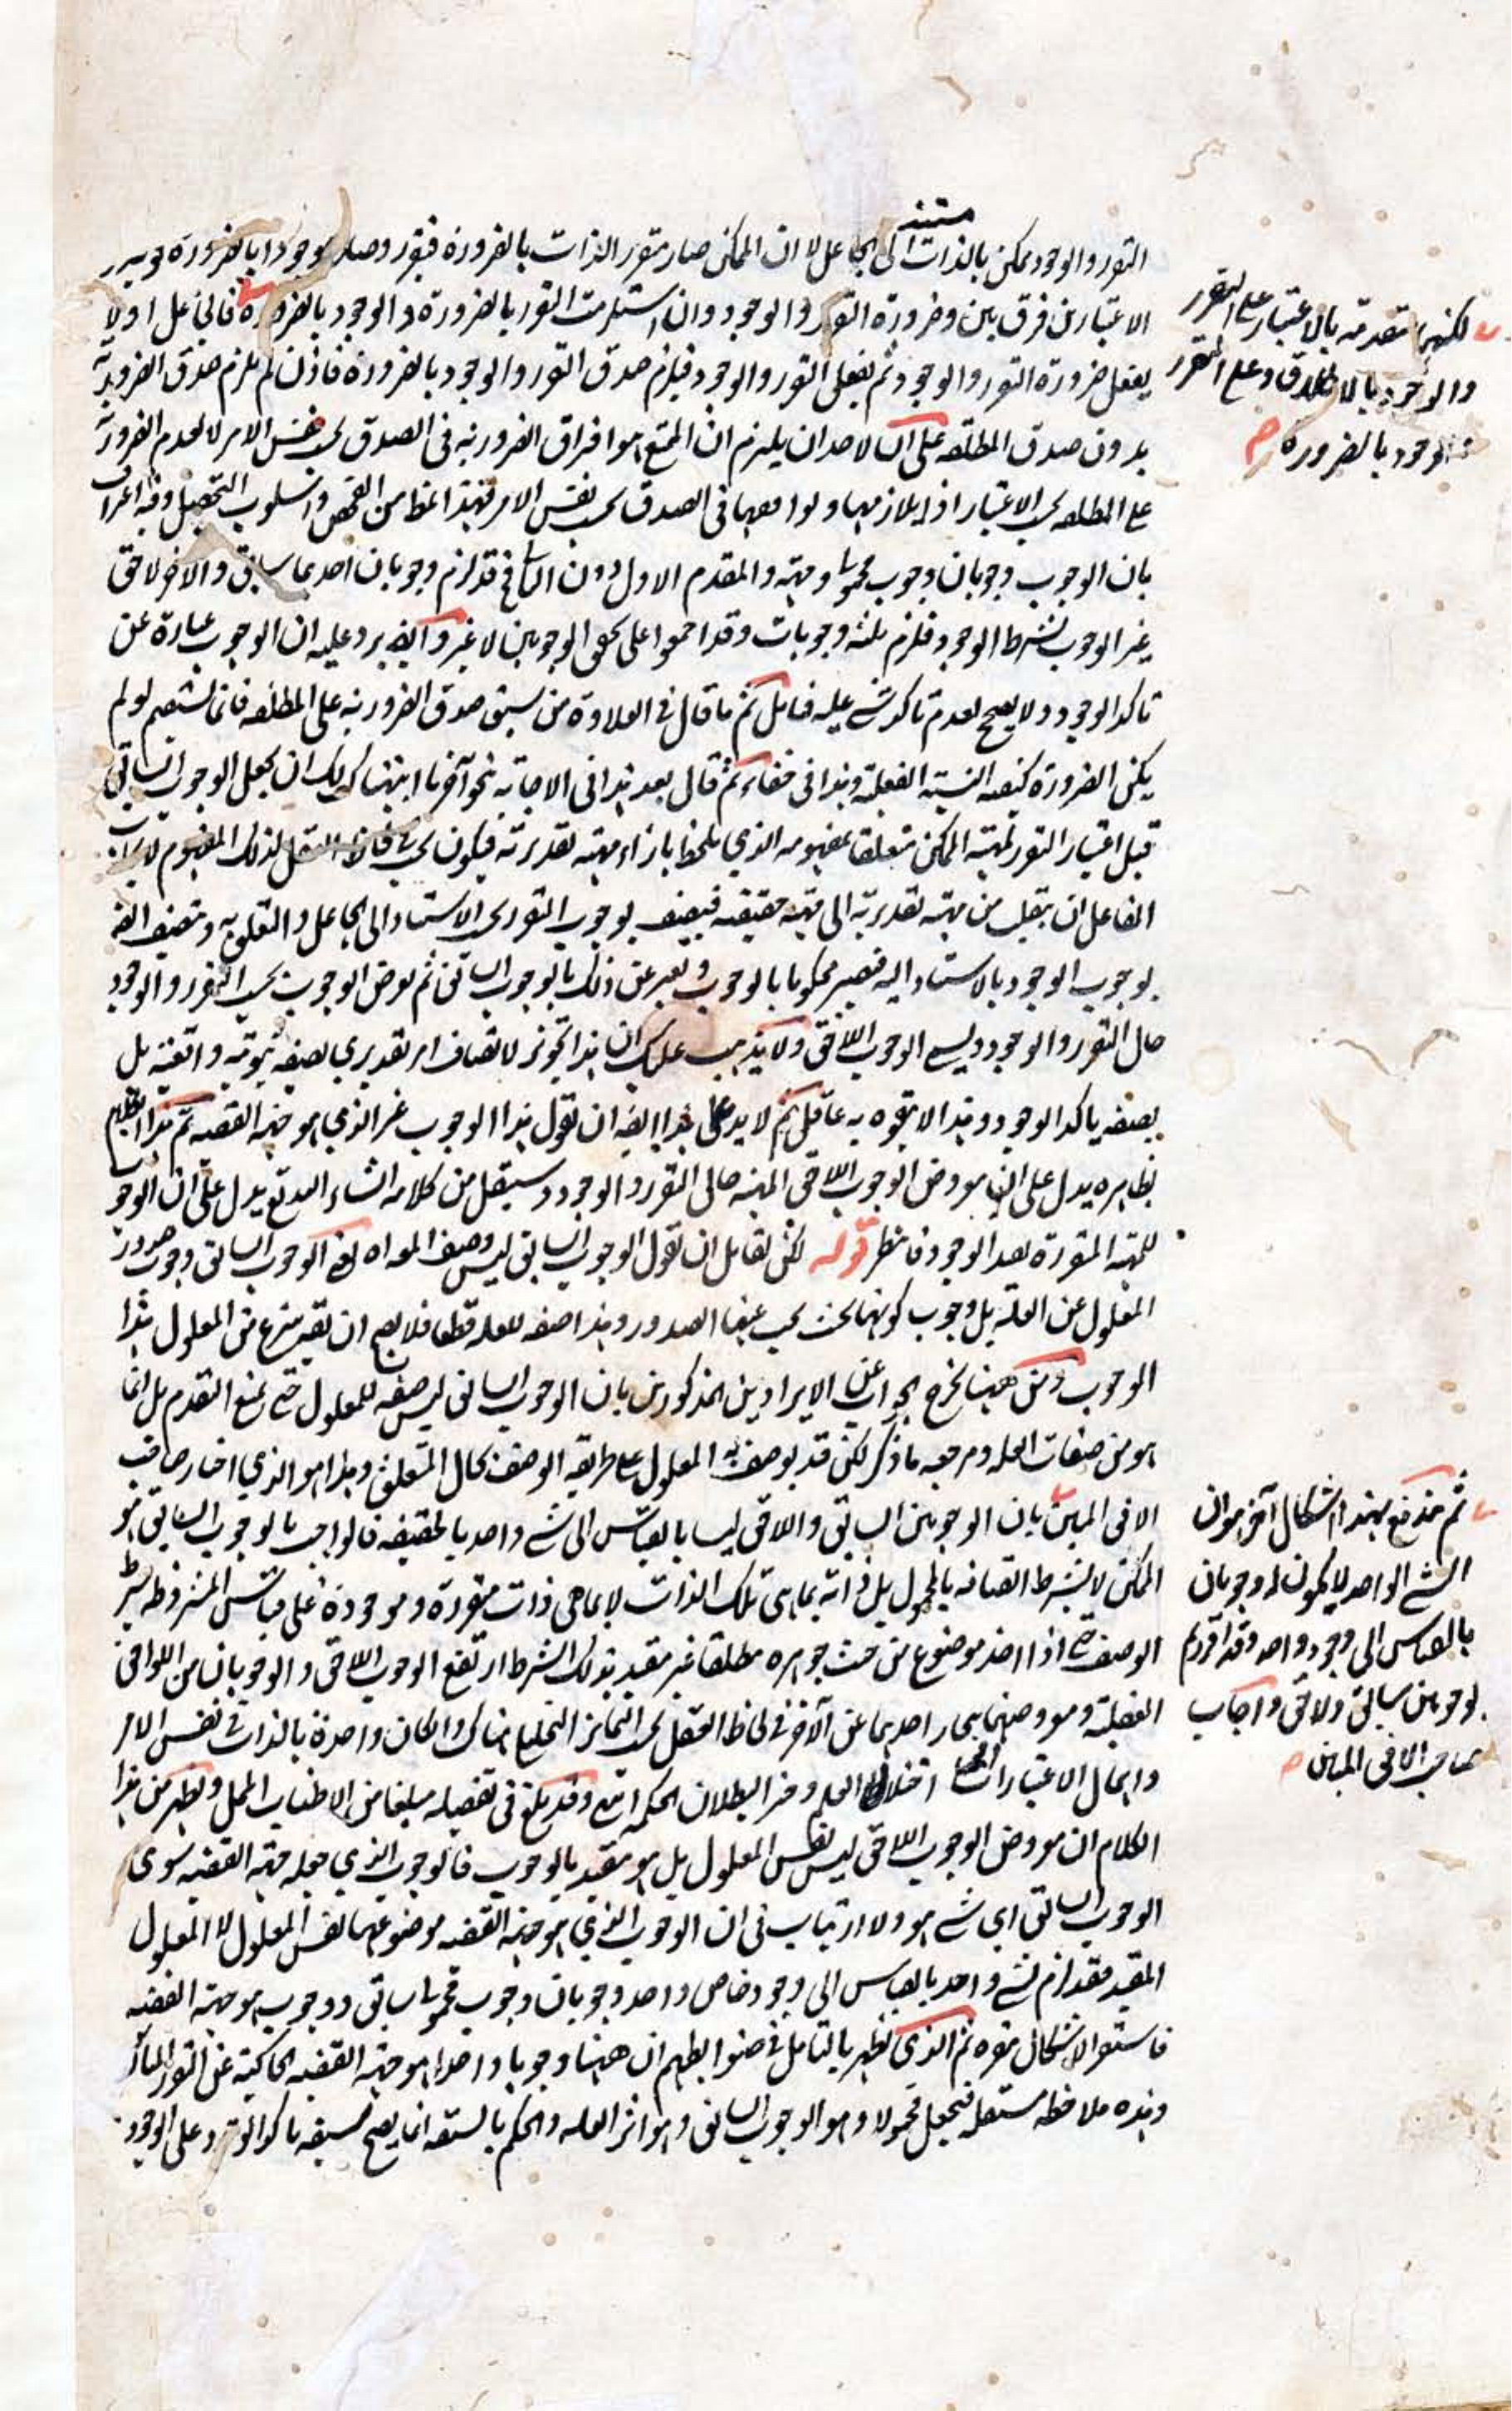 مستند
التقرر والوجود ممكن بالذات الى الجاعل لا ان الممكن صار متقرر الذات بالضرورة فتقرر وصار موجودا بالضرورة
الاعتبارين فرق بين وضرورة التقرر والوجود وان استلزمت التقرر بالضرورة والوجود بالضرورة فالجاعل اولا
يفعل ضرورة التقرر والوجود ثم يفعل التقرر والوجود فيلزم صدق التقرر والوجود بالضرورة فاذن لم يلزم صدق الضرورية
بدون صدق المطلقه على ان لاحد ان يلتزم ان الممتنع هو افتراق الضرورية في الصدق بحسب نفس الامر لا تقدم الضرورية
على المطلقه بحسب الاعتبار اذ لا تلازمها ولوا معهما في الصدق بحسب نفس الامر فهذا النمط من الفحص واسلوب التحصيل وفيه
بان الوجوب وجوبان وجوب محمولا وجهة والمقدم الاول دون الثاني فقد لزم وجوبان احدهما سابق والآخر لاحق
غير الوجوب بشرط الوجود فلزم ثلثه وجوبات وقد اجمعوا على تحقق الوجوبين لا غير وايضا يرد عليه ان الوجوب عبارة عن
تاكد الوجود ولا يصح تقدم تاكد شئ عليه فتامل ثم ما قال في العلاوة من سبق صدق الضرورية على المطلقه فانما يستقيم لو لم
يكن الضرورة كيفيه النسبة الفعلية وهذا في خفاء ثم قال بعد هذا في الاجابة نحو آخر ما ابتهناك لك ان تجعل الوجوب السابق
قبل اعتبار التقرر لمهية الممكن متعلقا بمفهومه الذي يلحظ بازاء مهية تقديرية فيكون في لحاظ العقل لذلك المفهوم
الفاعل ان ينقل من مهية تقديرية الى مهية حقيقيه فيتصف بوجوب التقرر بحسب الاستناد الى الجاعل والتعلق به ويتصف ايضا
بوجوب الوجود بالاستناد اليه فيصير محكوما بالوجوب ويعبر عن ذلك بالوجوب السابق ثم يعرض الوجوب بحسب التقرر والوجود
حال التقرر والوجود وليسم الوجوب اللاحق ولا يذهب عليك ان هذا تجويز لاتصاف امر تقديري بصفة ثبوتية واقعية بل
بصفة تاكد الوجود وهذا لا يتفوه به عاقل ثم لا بد على هذا ايضا ان تقول هذا الوجوب غير الذي هو جهة القضيه ثم هذا الكلام
بظاهره يدل على ان معروض الوجوب اللاحق المهية حال التقرر والوجود وسينقل من كلامه انشاء الله تع يدل على ان الوجوب
للمهية المتقررة بعد الوجود فانتظر قوله لكن لقائل ان تقول الوجوب السابق ليس وصف المعلول ايضا الوجوب السابق وجوب صدور
المعلول عن العلة بل وجوب كونها بحيث يجب عنها الصدور وهذا صفة للعلة قطعا فلا يصح ان يعتبر منتزع عن المعلول هذا
الوجوب ومن ههنا يخرج الجواب عن الايرادين المذكورين بان الوجوب السابق ليس صفة للمعلول حتى يمنع التقدم بل انما
هو من صفات العلة ومرجعه ما ذكر لكن قد يوصف به المعلول على طريقه الوصف بحال المتعلق وهذا هو الذي اختار صاحب
الافق المبين بان الوجوبين السابق واللاحق ليسا بالقياس الى شئ واحد بالحقيقه فالواجب بالوجوب السابق هو
الممكن لا بشرط اتصافه بالمحمول بل ذاته بما هي تلك الذات لا بما هي ذات متقررة وموجودة على قياس المشروطه بشرط
الوصف حتى اذا اخذ موضوع من حيث جوهره مطلقا غير مقيد بذلك الشرط ارتفع الوجوب اللاحق والوجوبان من اللواحق
العقلية ومعروضهما يمتاز احدهما عن الآخر في لحاظ العقل بحسب التمايز التحليلي هناك وان كان واحدة بالذات في نفس الامر
واهمال الاعتبارات اختلال العلم وحيز البطلان الحكمة انتهى وقد بلغ في تفصيله مبلغا من الاطناب الممل ويظهر من هذا
الكلام ان معروض الوجوب اللاحق ليس نفس المعلول بل هو مقيد بالوجوب فالوجوب الذي جعله جهة القضيه سوى
الوجوب السابق اي شئ هو ولا ارتياب في ان الوجوب الذي هو جهة القضيه موضوعها نفس المعلول لا المعلول
المقيد فقد لزم لشئ واحد بالقياس الى وجود خاص واحد وجوبان وجوب محمولا سابق ووجوب هو جهة القضيه
فاستقر الاشكال مقره ثم الذي يظهر بالتامل في ضوابطهم ان ههنا وجوبا واحدا هو جهة القضيه الحاكية عن التقرر
وهذه ملاحظه مستقله فيجعل محمولا وهو الوجوب السابق وهو اثر العلة والحكم بالسبقه انما يصح لسبقه تاكد التقرر على الوجود
لكنها متقدمة بالاعتبار على التقرر
والوجود بالاطلاق وعلى التقرر
والوجود بالضرورة صح
ثم يندفع بهذا اشكال آخر هو ان
الشئ الواحد لا يكون له وجوبان
بالقياس الى وجود واحد وقد اقررتم
بوجوبين سابق ولاحق واجاب
صاحب الافق المبين